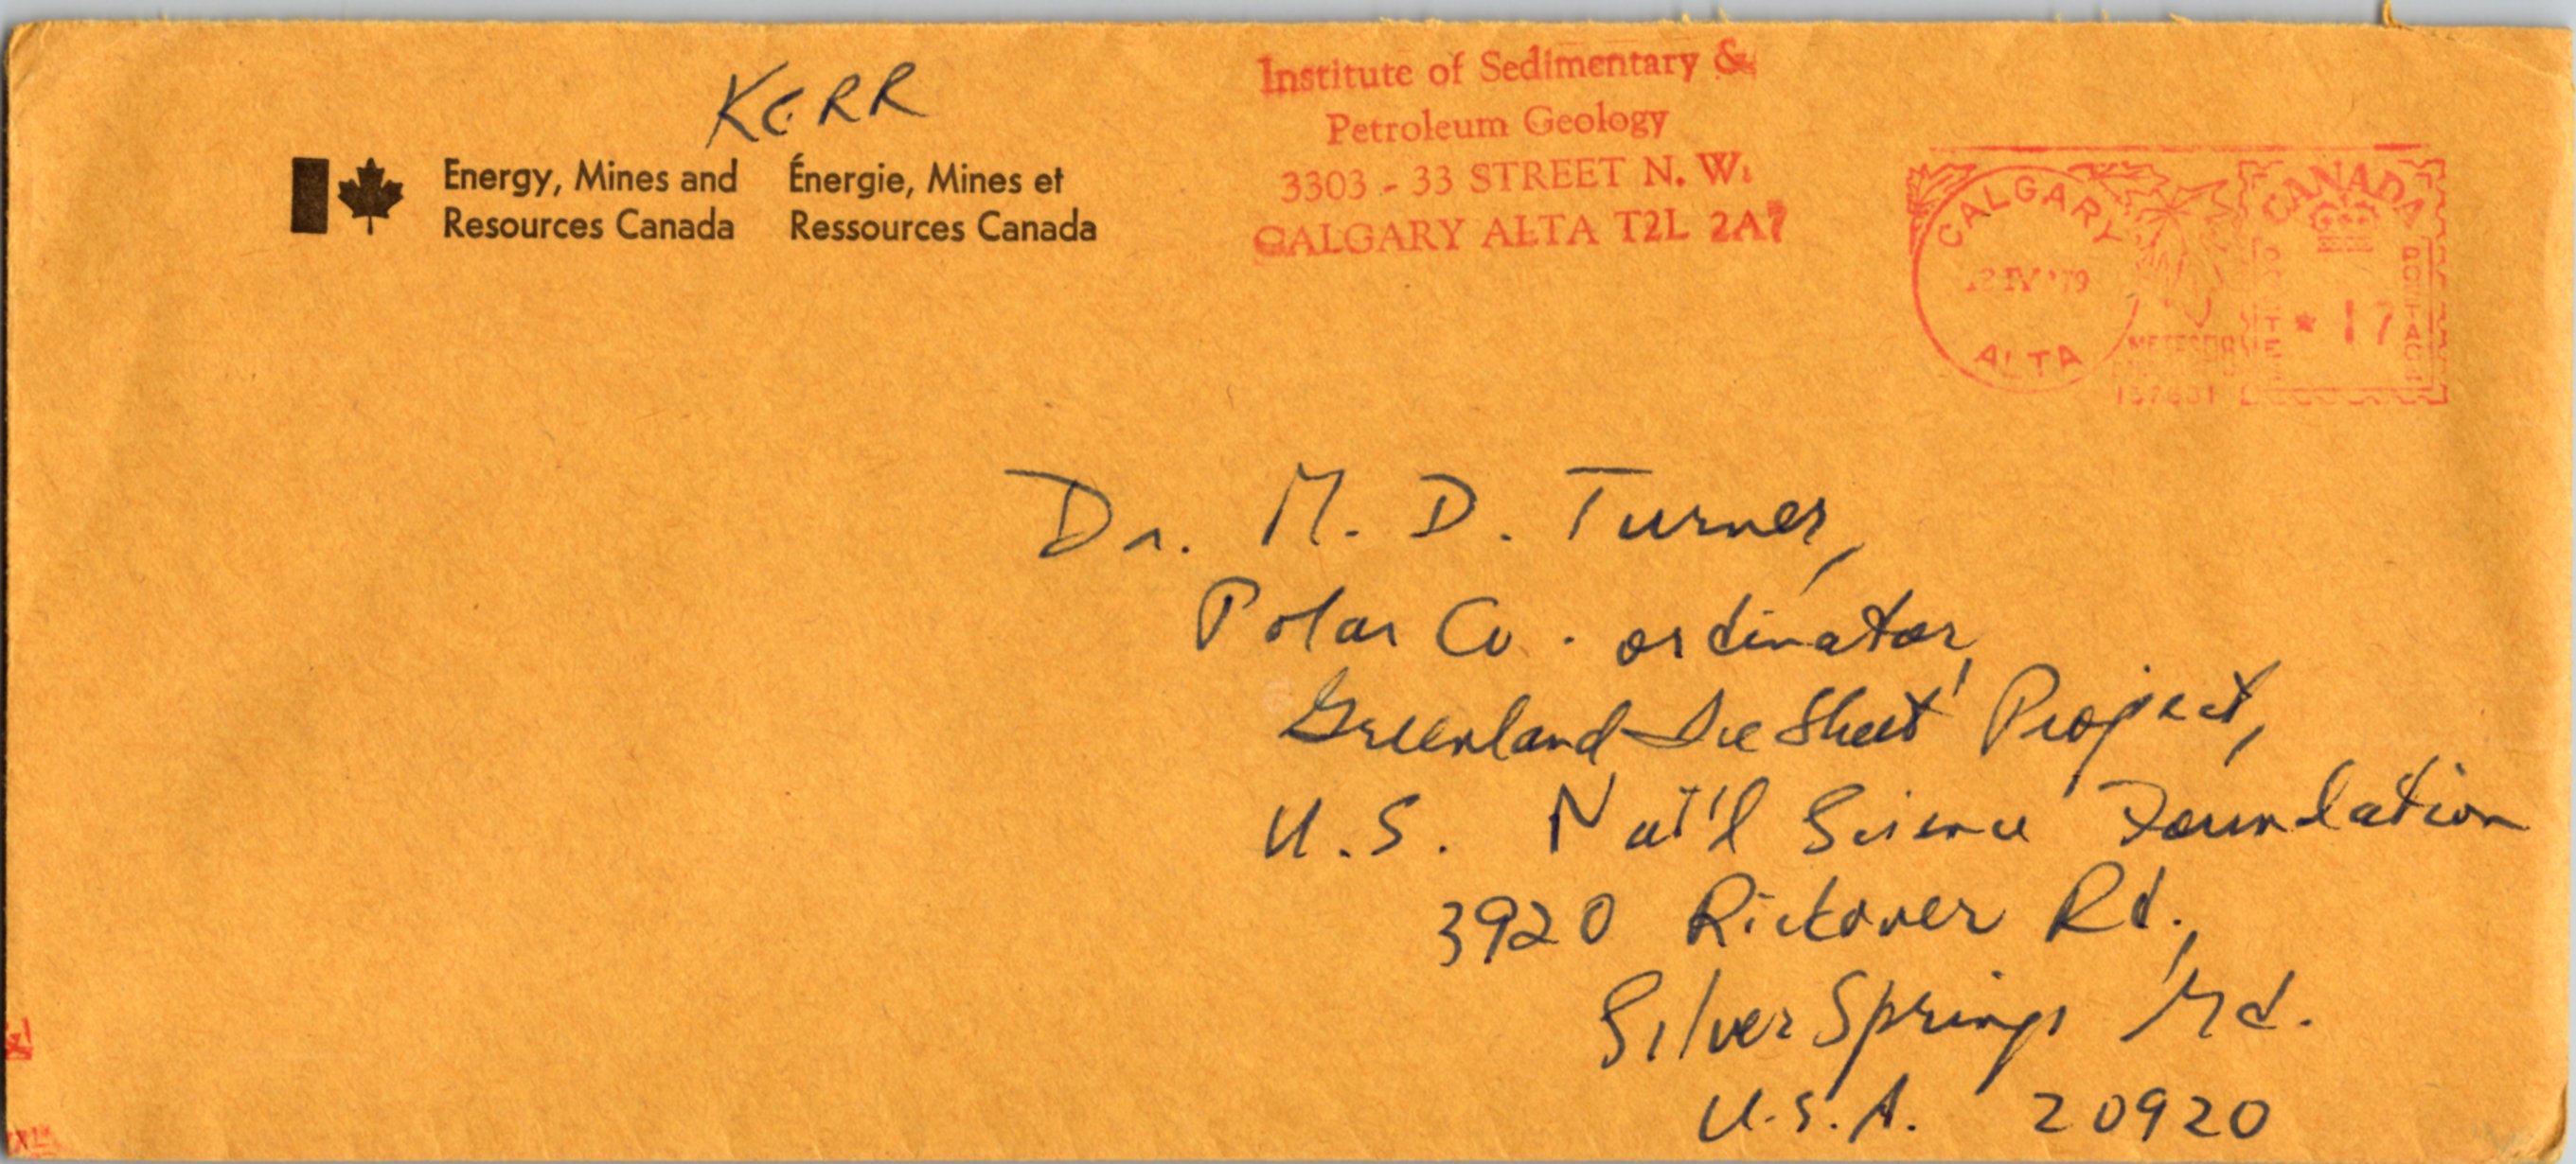 KERR
Energy, Mines and
Resources Canada
Énergie, Mines et
Ressources Canada
Institute of Sedimentary &
Petroleum Geology
3303 - 33 STREET N. W.
CALGARY ALTA T2L 2A7
CALGARY
IV '79
ALTA
CANADA
POSTAGE
* 17
Dr. M. D. Turner,
Polar Co-ordinator,
Greenland Ice Sheet Project,
U.S. Nat'l Science Foundation
3920 Rickover Rd.,
Silver Springs Md.
U.S.A. 20920